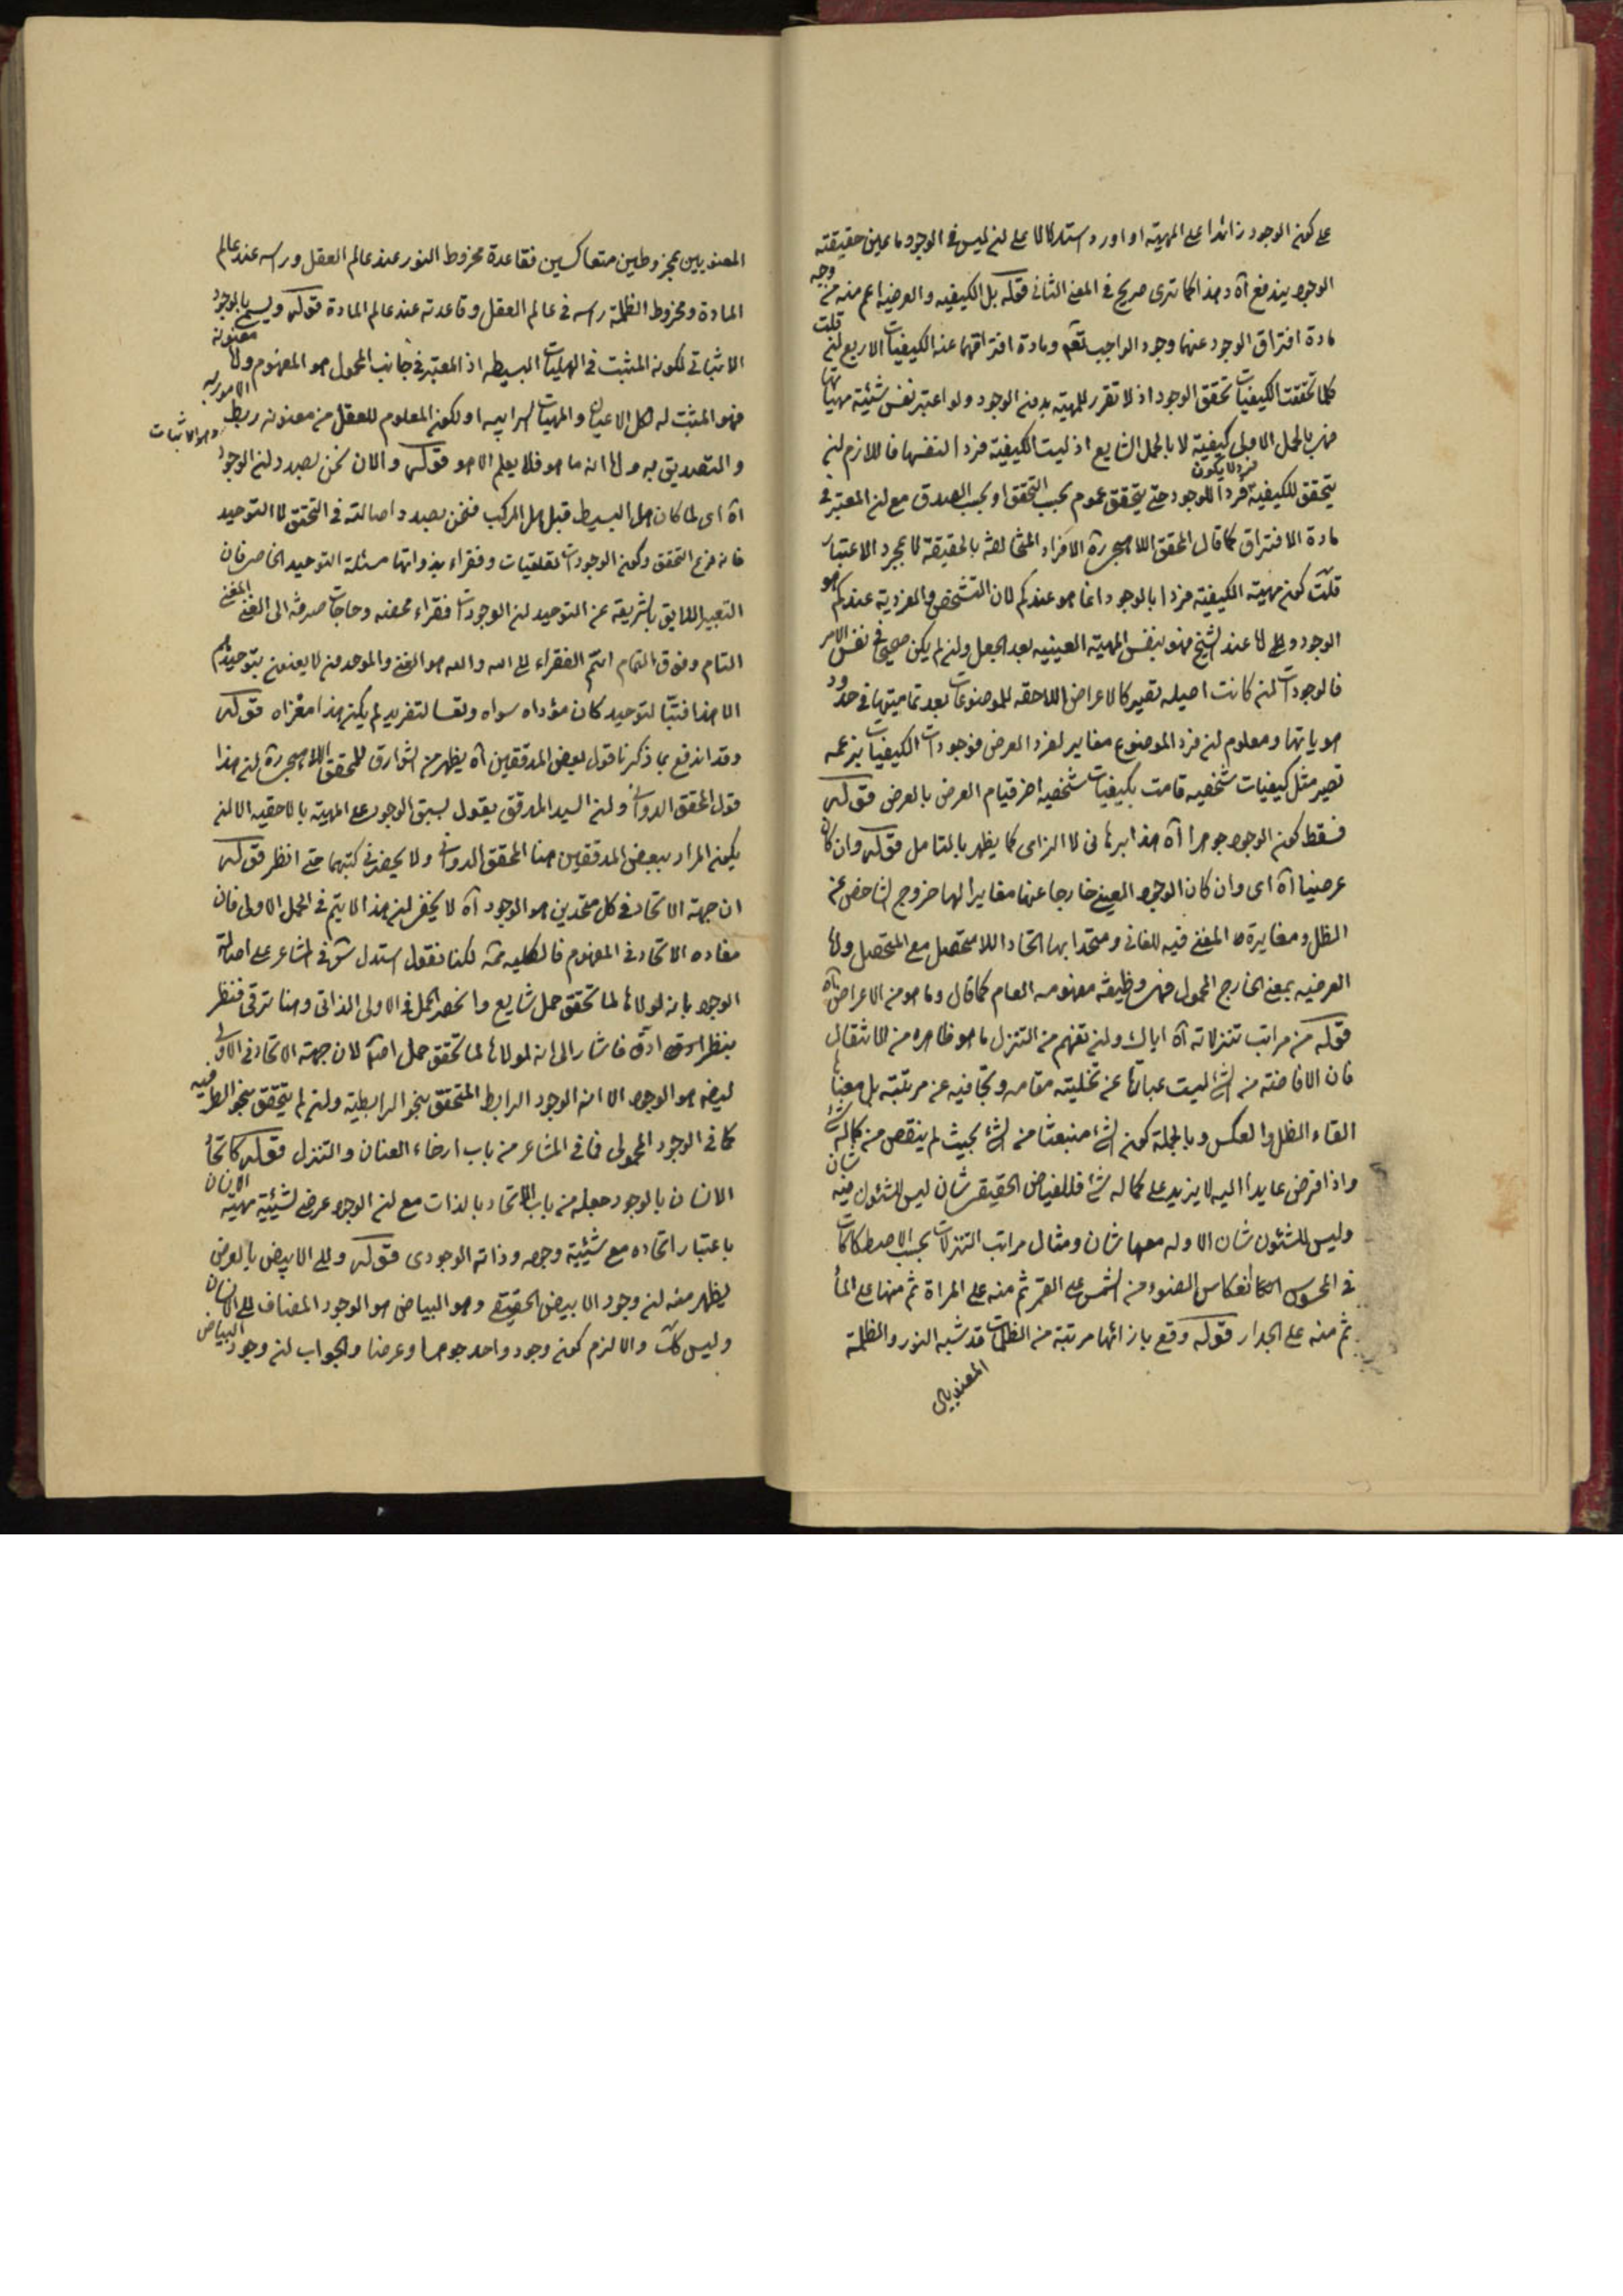 على كون الوجود زائدا على المهية او اورد استدكالا على ان ليس فى الوجود ما عين حقيقته
الوجود يندفع آه و هذا كما ترى صريح فى المعنى الثانى قوله بل الكيفيه و العرضيه اعم منه من وجه
مادة افتراق الوجود عنهما وجود الواجب تعم و مادة افتراقهما عنه الكيفيات الاربع قلت ان
كلما تحققت الكيفيات تحقق الوجود اذ لا تقرر للمهية بدون الوجود ولو اعتبر نفس شيئية مهياتها
فهى بالحمل الاولى كيفية لا بالحمل الشايع اذ ليست الكيفية فردا لنفسها فاللازم ان
يتحقق للكيفية فرد لا يكون فردا للوجود حتى يتحقق عموم بحسب التحقق او بحسب الصدق مع ان المعتبر فى
مادة الافتراق كما قال المحقق اللاهيجى ره الافراد المتخالفة بالحقيقة لا بمجرد الاعتبار
قلت كون مهية الكيفية فردا بالوجود انما هو عندكم لان التشخص و الفردية عندكم هو
الوجود و اما عند الشيخ فهو بنفس المهية العينيه بعد الجعل و ان لم يكن صحيحا فى نفس الامر
فالوجودات ان كانت اصيله تصير كالاعراض اللاحقه للموضوعات بعد تماميتها فى حدود
هوياتها و معلوم ان فرد الموضوع مغاير لفرد العرض فوجودات الكيفيات بزعمه
تصير مثل كيفيات شخصيه قامت بكيفيات شخصيه اخر قيام العرض بالعرض قوله
فسقط كون الوجود جوهرا آه هذا برهانى لا الزامى كما يظهر بالتامل قوله و ان كان
عرضيا آه اى و ان كان الوجود العينى خارجا عنها مغايرا لها خروج الشاخص عن
الظل و مغايرة المفنى فيه للفانى و متحدا بها اتحاد اللامتحصل مع المتحصل و اما
العرضيه بمعنى الخارج المحمول فهى وظيفة مفهومه العام كما قال و ما هو من الاعراض آه
قوله من مراتب تنزلاته آه اياك و ان تفهم من التنزل ما هو ظاهره من الانتقال
فان الافاضة من الشئ ليست عبارة عن تخليته مقامه و تجافيه عن مرتبته بل معناها
القاء الظل و العكس و بالجملة كون الشئ منبعثا من الشئ بحيث لم ينقص من كماله شئ
و اذا فرض عايدا اليه لا يزيد على كماله شئ فللفياض الحقيقى شان ليس للشئون فيه شان
و ليس للشئون شان الا و له معها شان و مثال مراتب التنزلات بحسب الاصطكاكات
فى المحسوس كانعكاس الضوء من الشمس على القمر ثم منه على المراة ثم منها على الماء
ثم منه على الجدار قوله وقع بازائها مرتبة من الظلمات قد شبه النور و الظلمة
المعنويين
المعنويين بمخروطين متعاكسين فقاعدة مخروط النور عند عالم العقل و راسه عند عالم
المادة و مخروط الظلمة راسه فى عالم العقل و قاعدته عند عالم المادة قوله و يسمى بالوجود
الاثباتى لكونه المثبت فى الهليات البسيطه اذ المعتبر فى جانب المحمول هو المفهوم و اما معنونه
فهو المثبت له لكل الاعيان و المهيات سرابيه او لكون المعلوم للعقل من معنونه ربط الامور به
و هو الاثبات
و التصديق به و اما انه ما هو فلا يعلم الا هو قوله و الان نحن بصدد ان الوجود
آه اى لما كان هل البسيط قبل هل المركب فنحن بصدد اصالته فى التحقق لا التوحيد
فانه فرع التحقق و كون الوجودات تعلقيات و فقراء بذواتها مسئلة التوحيد الخاصى فان
التعبير اللايق بالشريعة عن التوحيد ان الوجودات فقراء محضه و حاجات صرفة الى الغنى المغنى
التام و فوق التمام انتم الفقراء الى الله و الله هو الغنى و الموحدون لا يعنون بتوحيدهم
الا هذا فتبا لتوحيد كان مؤداه سواه و تعسا لتفريد لم يكن هذا مغزاه قوله
و قد اندفع بما ذكرنا قول بعض المدققين آه يظهر من الشوارق للمحقق اللاهيجى ره ان هذا
قول المحقق الدوانى و ان السيد المدقق يقول بسبق الوجود على المهية بالاحقيه الا ان
يكون المراد ببعض المدققين هنا المحقق الدوانى و لا يحضرنى كتبهما حتى انظر قوله
ان جهة الاتحاد فى كل متحدين هو الوجود آه لا يخفى ان هذا لا يتم فى الحمل الاولى فان
مفاده الاتحاد فى المفهوم فالكليه ممنوعة لكنا نقول استدل س فى المشاعر على اصالة
الوجود بانه لولاها لما تحقق حمل شايع و انحصر الحمل فى الاولى الذاتى و هنا ترقى فنظر
بنظر ادق فاشار الى انه لولاها لما تحقق حمل اصلا لان جهة الاتحاد فى الاولى
ايضا هو الوجود الا انه الوجود الرابط المتحقق بنحو الرابطية و ان لم يتحقق بنحو الطرفيه
كما فى الوجود المحمولى فما فى المشاعر من باب ارخاء العنان و التنزل قوله كاتحاد
الانسان بالوجود جعله من باب الاتحاد بالذات مع ان الوجود عرضى لشيئية مهية الانسان
باعتبار اتحاده مع شيئية وجوده و ذاته الوجودى قوله و الى الابيض بالعرض
يظهر منه ان وجود الابيض الحقيقى و هو البياض هو الوجود المضاف الى الانسان
و ليس كك و الا لزم كون وجود واحد جوهرا و عرضا و الجواب ان وجود البياض